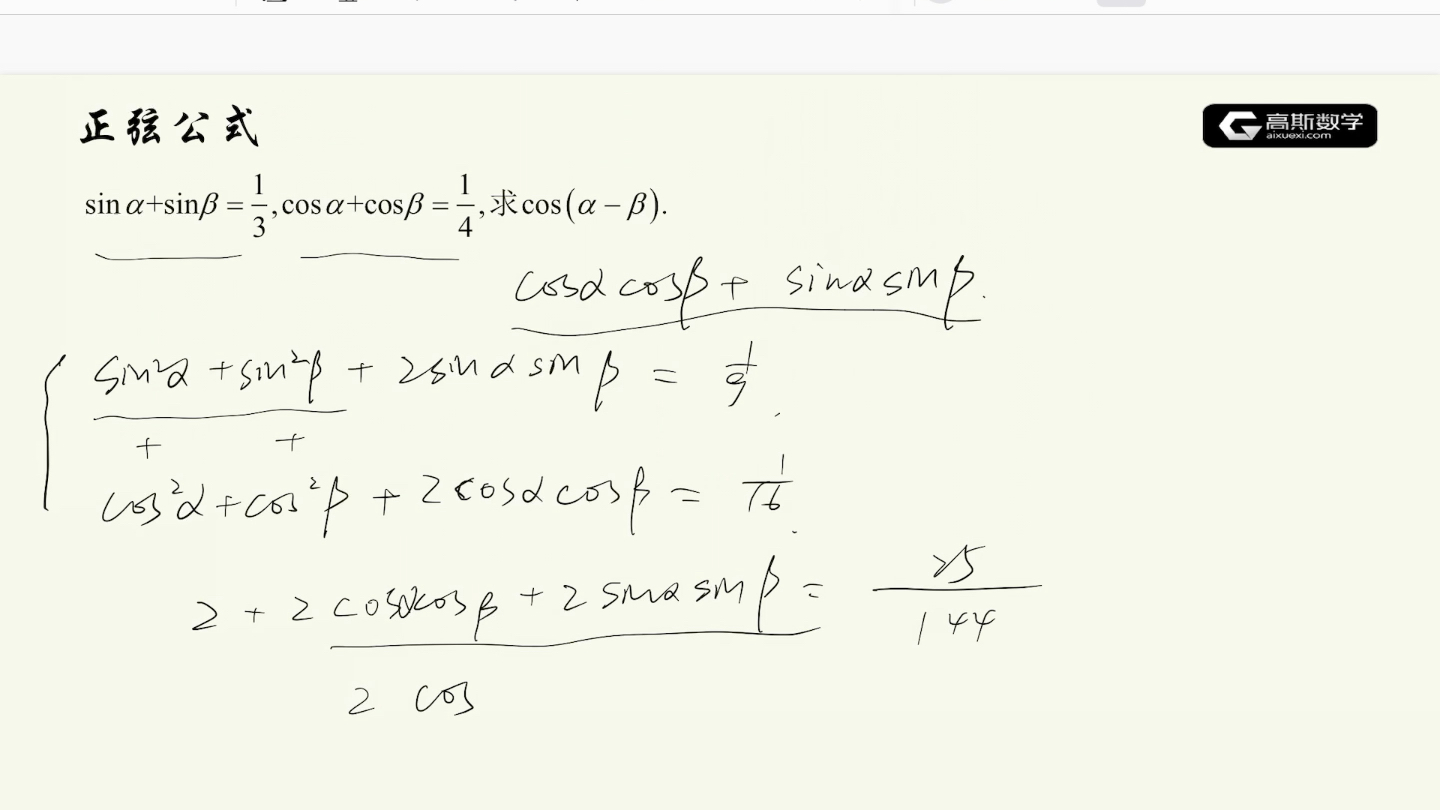 正弦公式
高斯数学
aixuexi.com
sinα+sinβ = 1/3, cosα+cosβ = 1/4, 求cos(α − β).
cosα cosβ + sinα sinβ.
sin²α + sin²β + 2 sinα sinβ = 1/9
+ +
cos²α + cos²β + 2 cosα cosβ = 1/16
2 + 2 cosα cosβ + 2 sinα sinβ = 25/144
2 cos